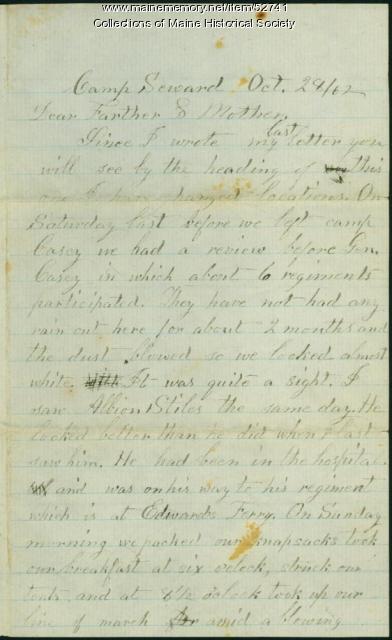 www.mainememory.net/item/52741
Collections of Maine Historical Society
Camp Seward Oct. 28/62
Dear Farther & Mother.
Since I wrote my last letter you
will see by the heading of this
one I have changed locations. On
Saturday last before we left camp
Casey we had a review before Gen.
Casey in which about 6 regiments
participated. They have not had any
rain out here for about 2 months and
the dust blowed so we looked almost
white. It was quite a sight. I
saw Albion Stiles the same day. He
looked better than he did when I last
saw him. He had been in the hospital
and was on his way to his regiment
which is at Edwards Ferry. On Sunday
morning we packed our knapsacks took
our breakfast at six oclock, struck our
tents and at 8 1/2 oclock took up our
line of march amid a blowing